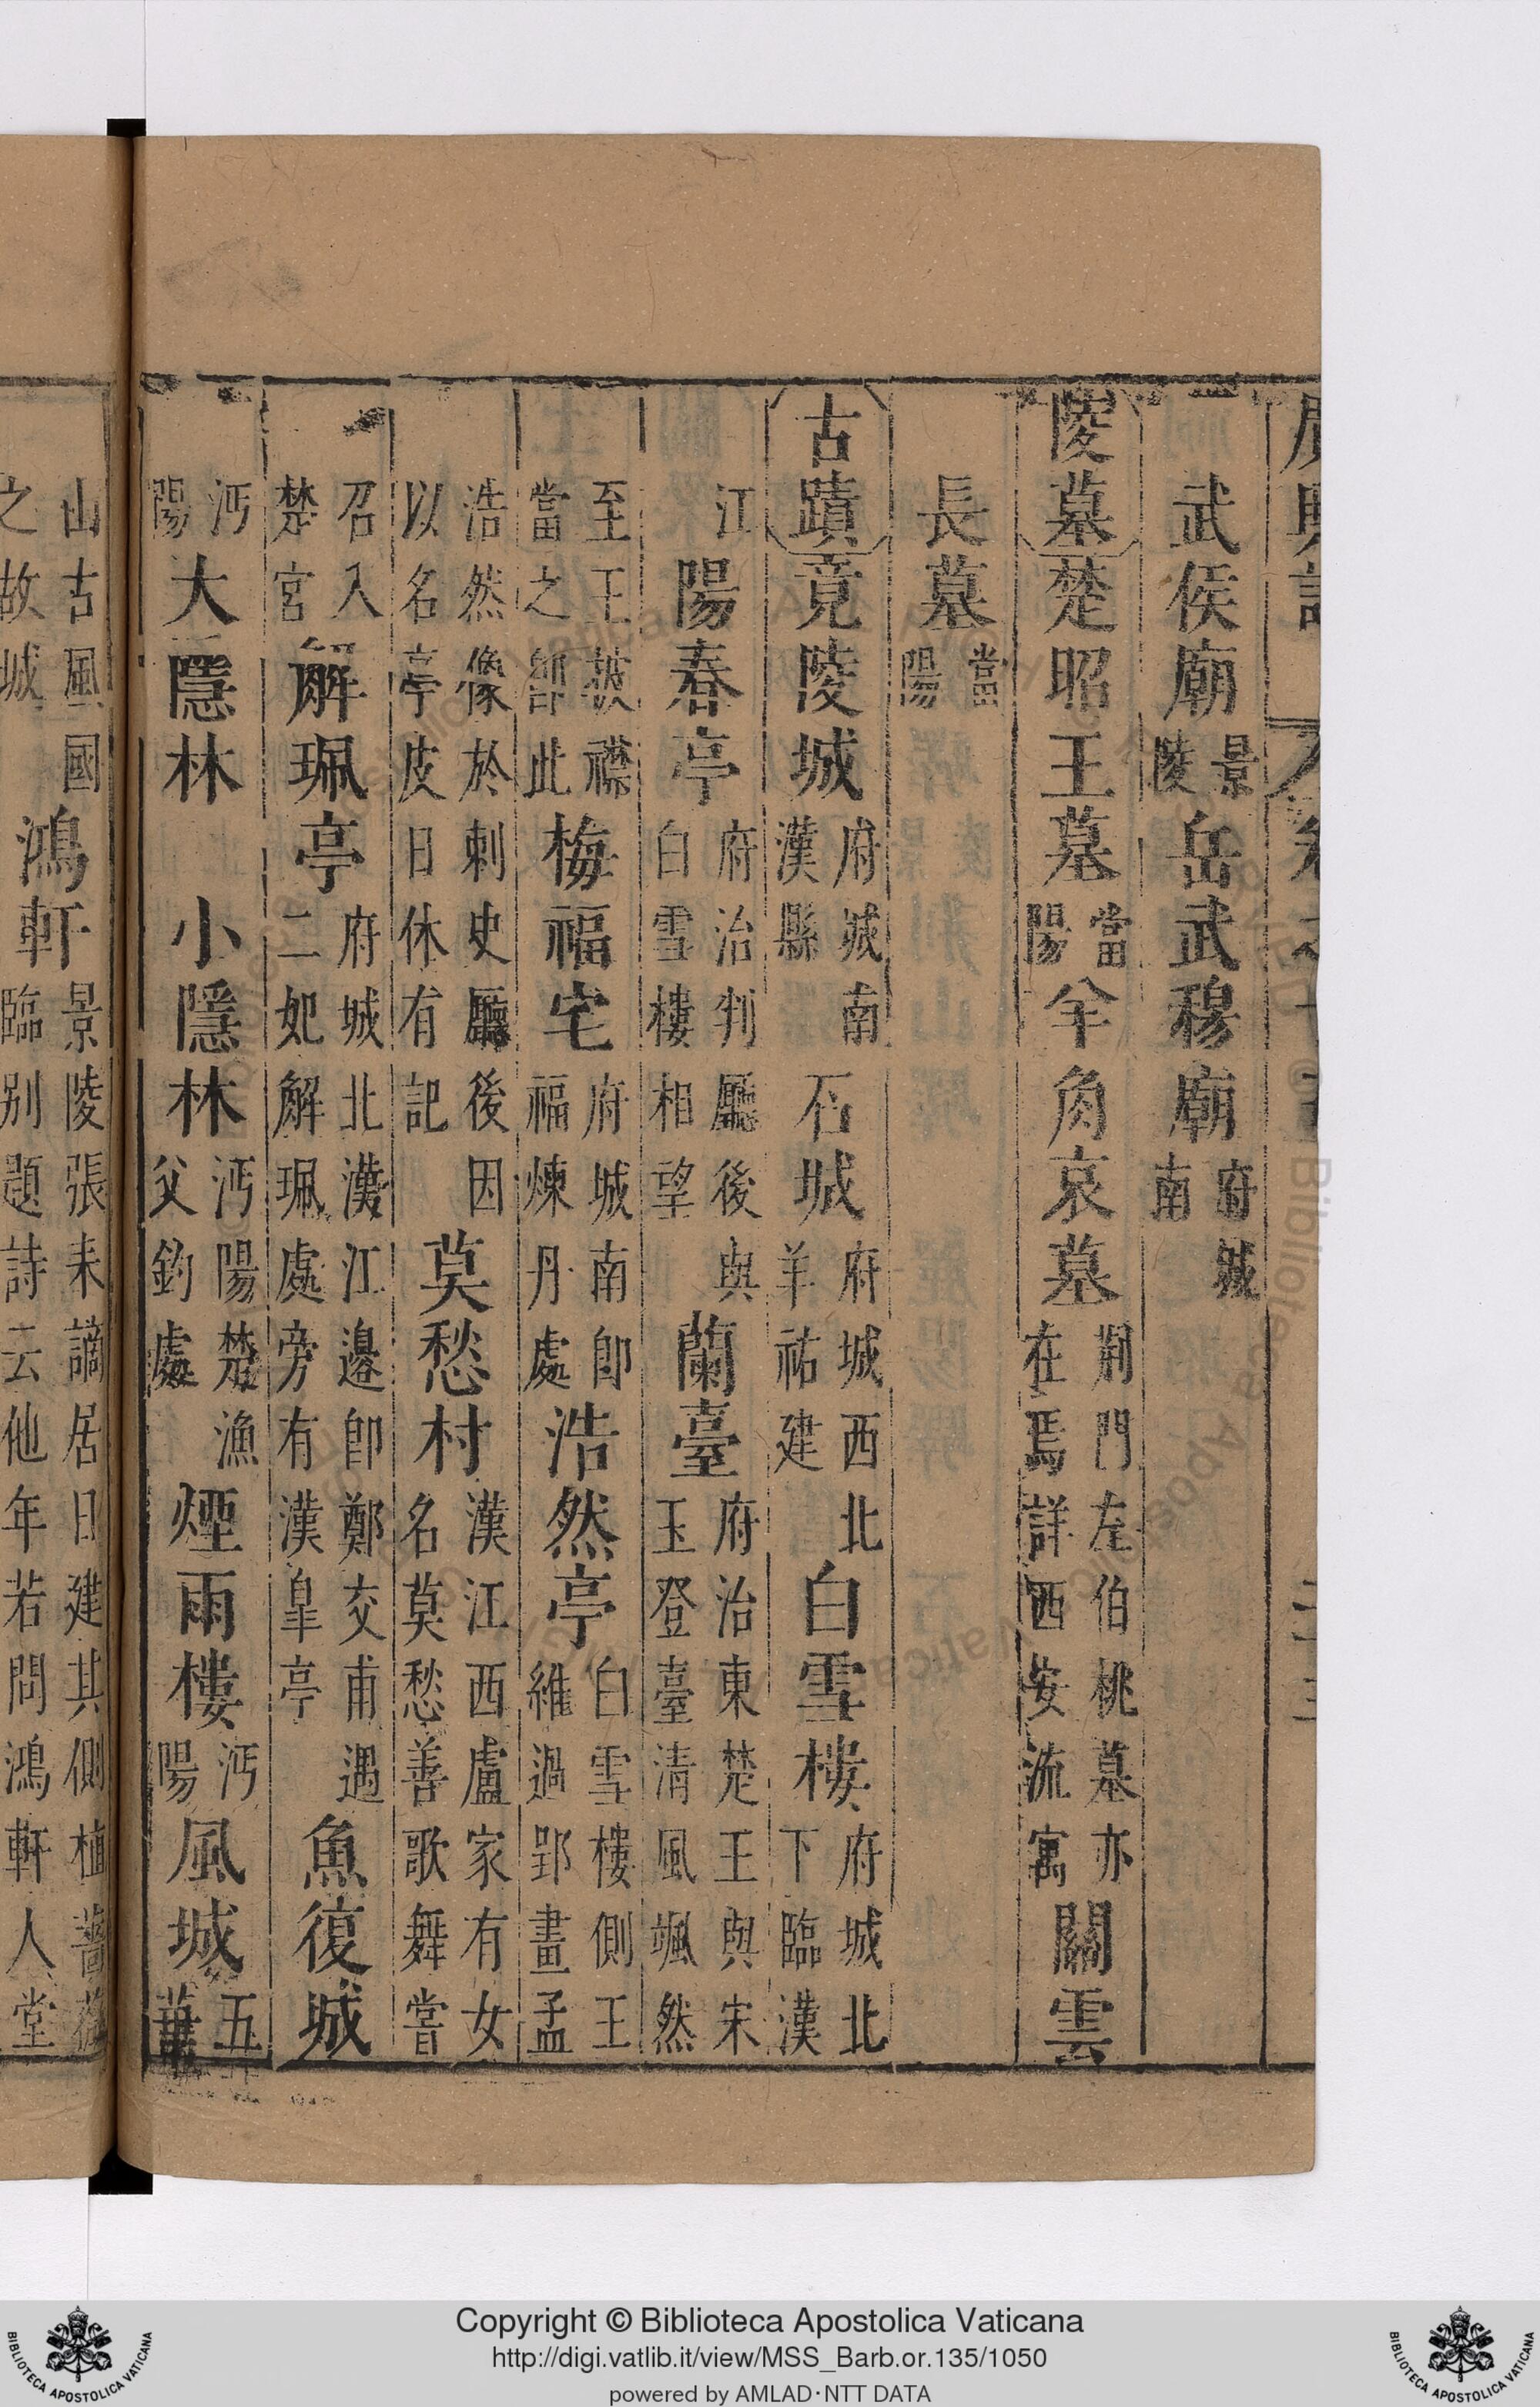 武侯廟景陵岳武穆廟府城南
陵墓楚昭王墓當陽羊角哀墓荆門左伯桃墓亦在焉詳西安流寓關雲
長墓當陽
古蹟竟陵城府城南漢縣石城府城西北羊祜建白雪樓府城北下臨漢
江陽春亭府治判廳後與白雪樓相望蘭臺府治東楚王與宋玉登臺清風颯然
至王披襟當之卽此梅福宅府城南卽福煉丹處浩然亭白雪樓側王維過郢畫孟
浩然像於刺史廳後因以名亭皮日休有記莫愁村漢江西盧家有女名莫愁善歌舞嘗
召入楚宮解珮亭府城北漢江邉卽鄭交甫遇二妃解珮處旁有漢皐亭魚復城
沔陽大隱林 小隱林沔陽楚漁父釣處煙雨樓沔陽風城五華
山古風國之故城鴻軒景陵張耒謫居日建其側植薔薇臨别題詩云他年若問鴻軒人堂
Copyright © Biblioteca Apostolica Vaticana
http://digi.vatlib.it/view/MSS_Barb.or.135/1050
powered by AMLAD·NTT DATA
BIBLIOTECA APOSTOLICA VATICANA
BIBLIOTECA APOSTOLICA VATICANA